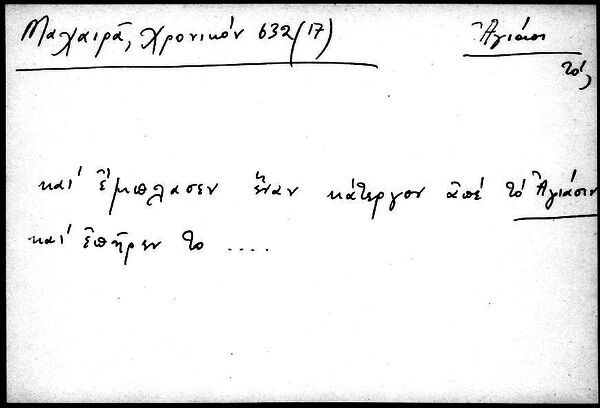 Μαχαιρᾶ, Χρονικόν 632 (17) Ἁγιάσι
τό,
καὶ ἔμπλασεν ἕναν κάτεργον ἀπὲ τὸ Ἁγιάσιν
καὶ ἐπῆρεν το ....